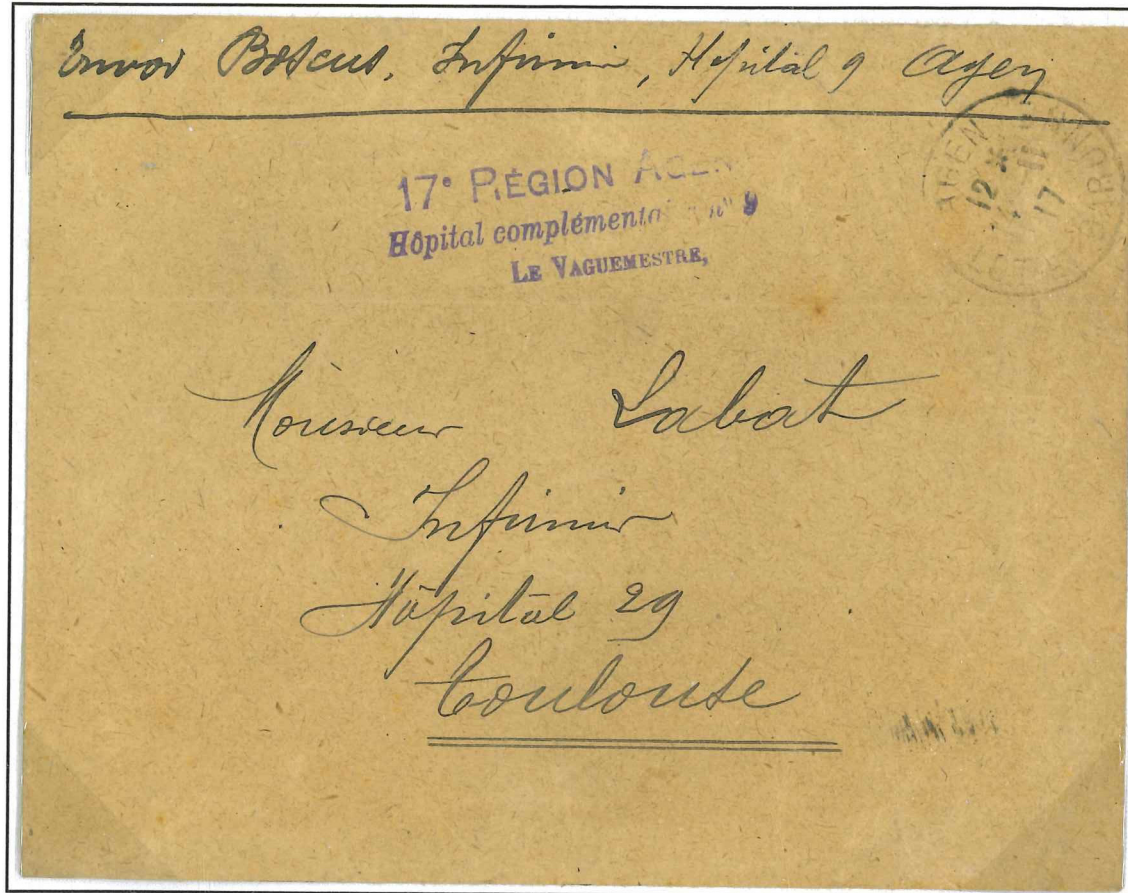 Envoi Boscus, Infirmier, Hopital 9 Agen
17e RÉGION AGEN
Hôpital complémentai n° 9
LE VAGUEMESTRE,
AGEN
12 *
11
17
LOT-ET-GARONNE
Monsieur Labat
Infirmier
Hôpital 29
Toulouse